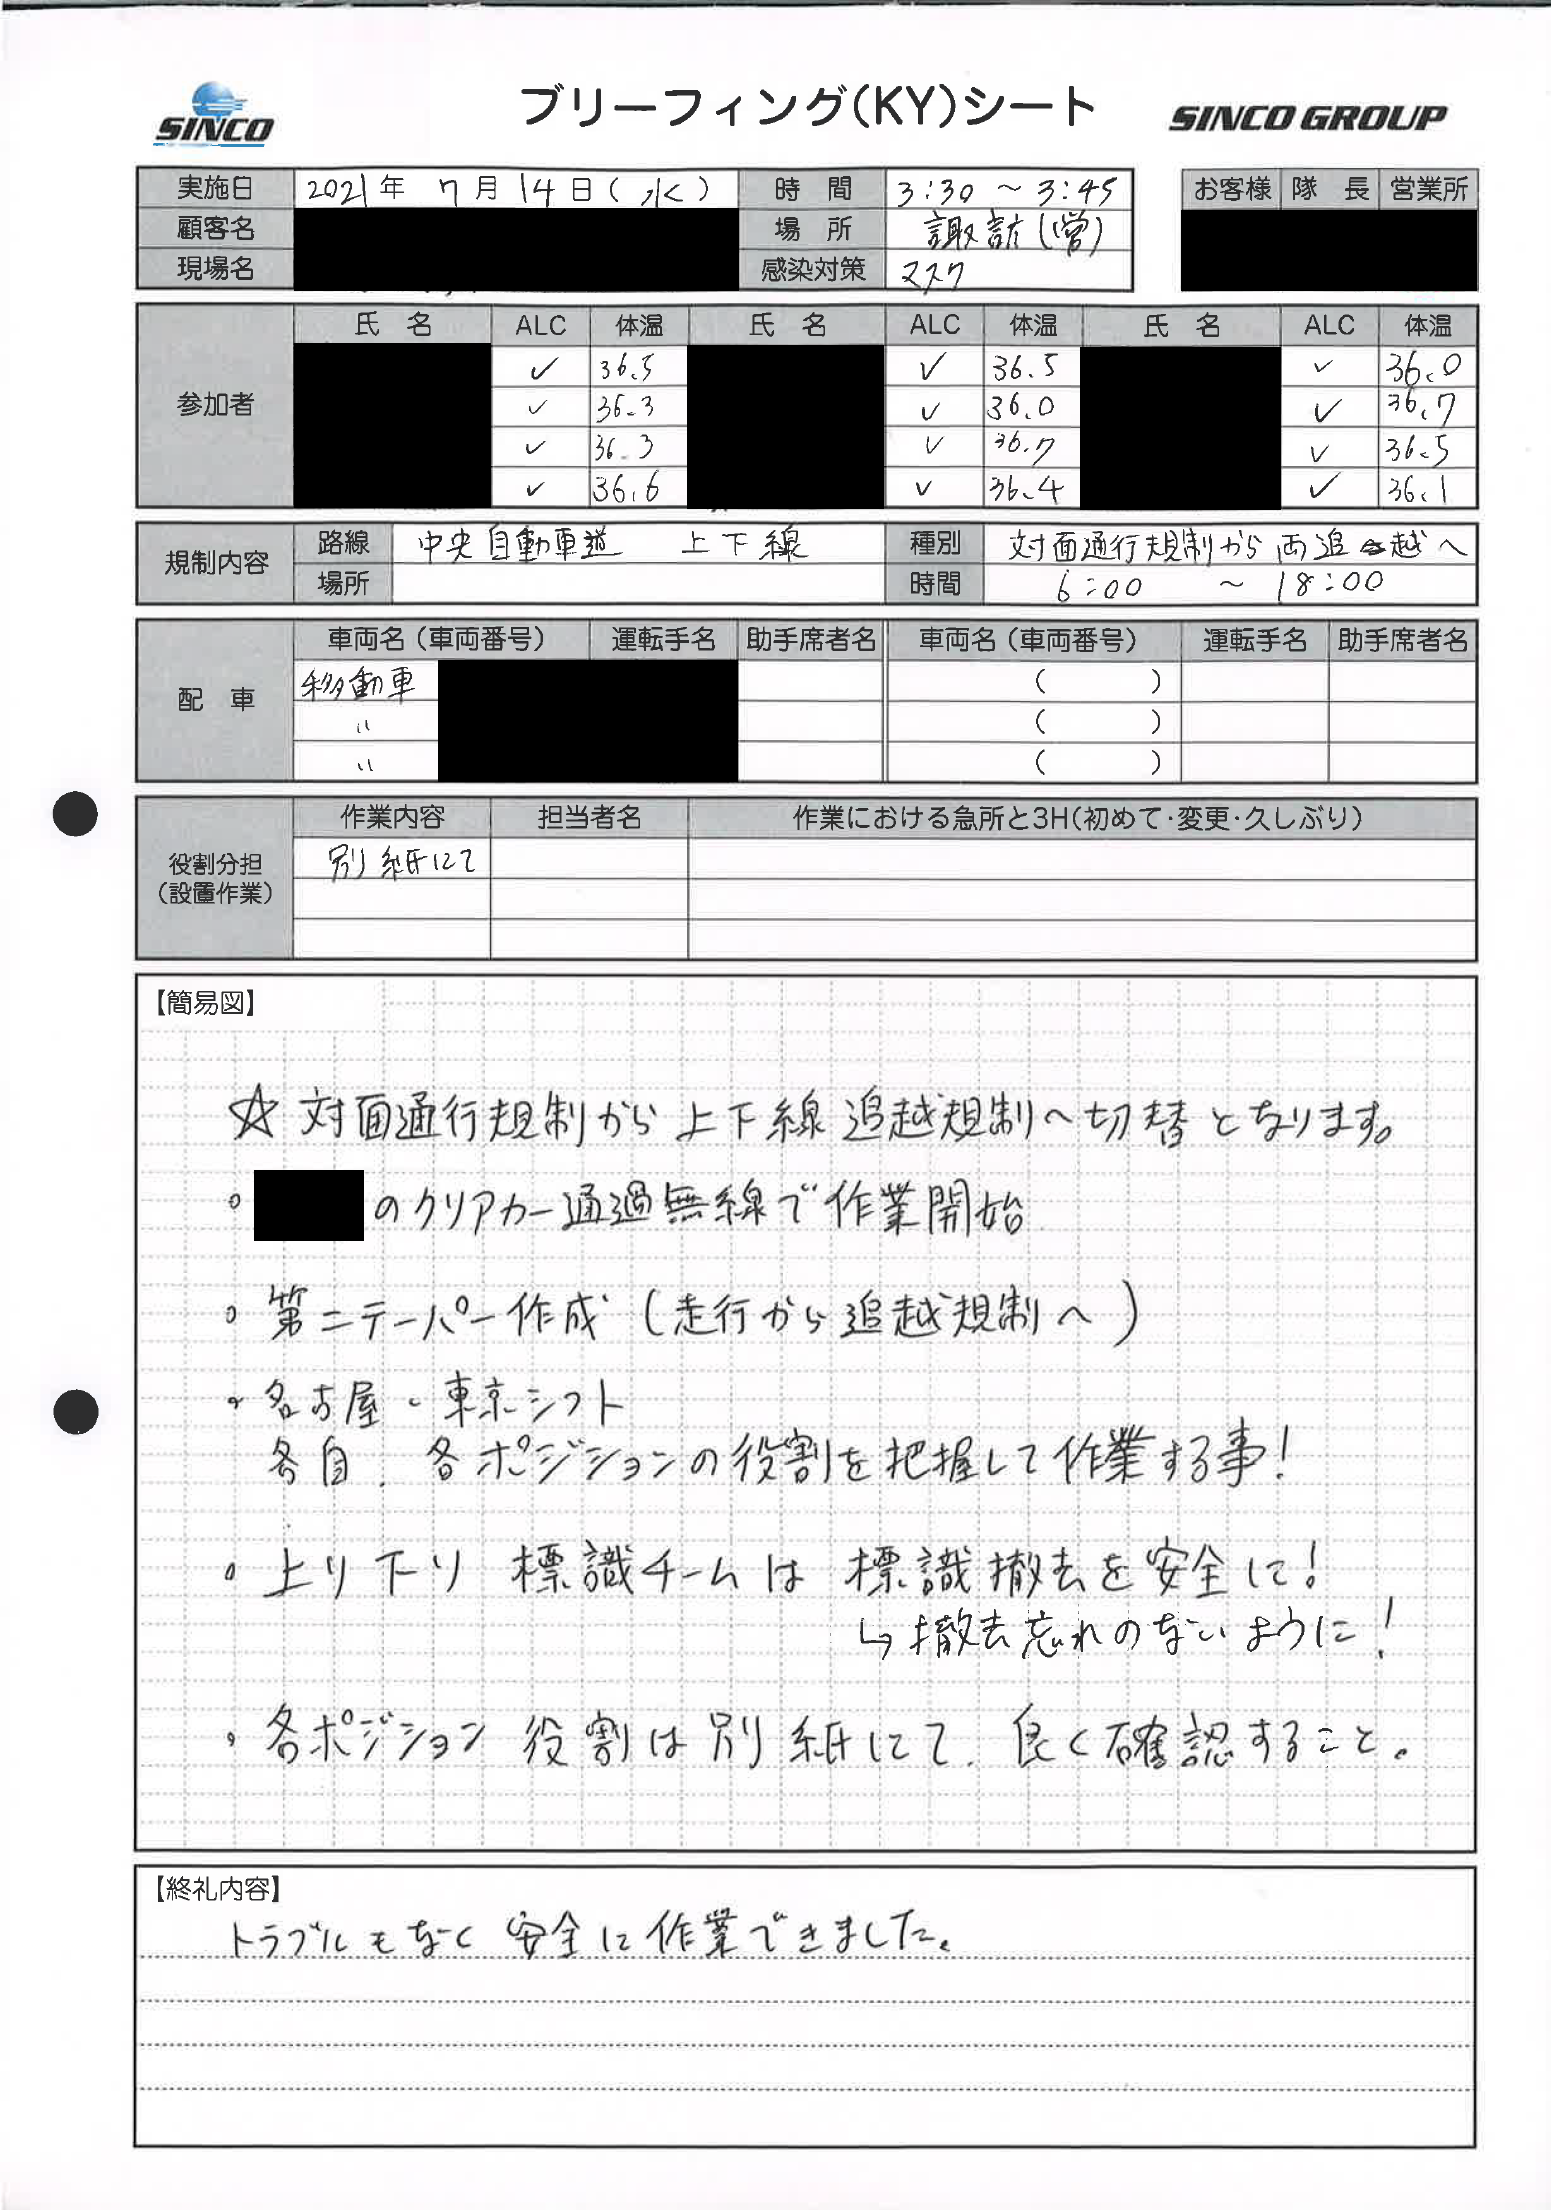 SINCO
ブリーフィング(KY)シート
SINCO GROUP
実施日 2021年 7月 14日(水) 時 間 3:30 ~ 3:45
お客様 隊 長 営業所
顧客名 場 所 諏訪(営)
現場名 感染対策 マスク
参加者
氏 名 ALC 体温 氏 名 ALC 体温 氏 名 ALC 体温
✓ 36.5 ✓ 36.5 ✓ 36.0
✓ 36.3 ✓ 36.0 ✓ 36.7
✓ 36.3 ✓ 36.7 ✓ 36.5
✓ 36.6 ✓ 36.4 ✓ 36.1
規制内容
路線 中央自動車道 上下線 種別 対面通行規制から両追越へ
場所 時間 6:00 ~ 18:00
配 車
車両名(車両番号) 運転手名 助手席者名 車両名(車両番号) 運転手名 助手席者名
移動車 ( )
〃 ( )
〃 ( )
役割分担
(設置作業)
作業内容 担当者名 作業における急所と3H(初めて・変更・久しぶり)
別紙にて
【簡易図】
☆対面通行規制から上下線追越規制へ切替となります。
。のクリアカー通過無線で作業開始
。第二テーパー作成(走行から追越規制へ)
・名古屋・東京シフト
各自.各ポジションの役割を把握して作業する事!
。上り下り 標識チームは 標識撤去を安全に!
↳撤去忘れのないように!
・各ポジション役割は別紙にて.良く確認すること。
【終礼内容】
トラブルもなく安全に作業できました。